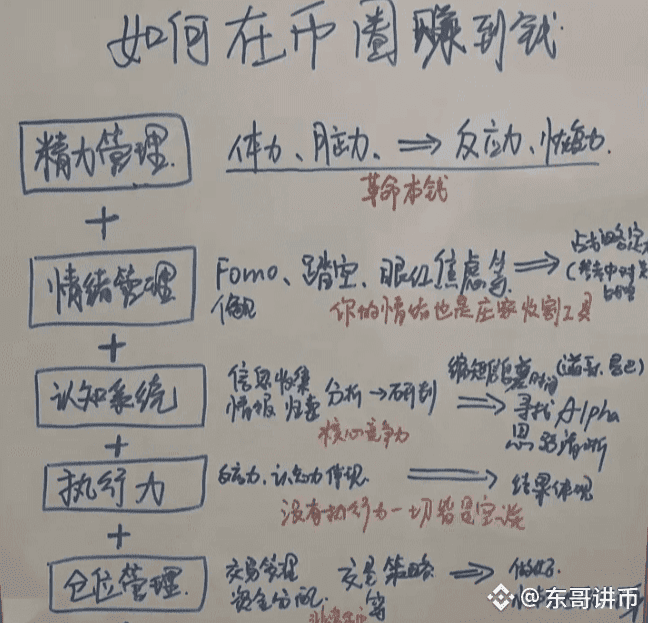 如何在币圈赚到钱
精力管理. 体力、脑力、⇒ 反应力、恢复力.
革命本钱
+
情绪管理 Fomo、踏空、眼红焦虑等 ⇒
偏见 你的情绪也是庄家收割工具
+
认知系统 信息收集 分析→研判 ⇒ 缩短
情报 归素 寻找 Alpha
核心竞争力 思路清晰
+
执行力 反应力、认知力体现. ⇒ 结果体现
没有执行力一切皆是空谈
+
仓位管理. 交易管理 交易策略 ⇒ 做好
资金分配. 等
@东哥讲币